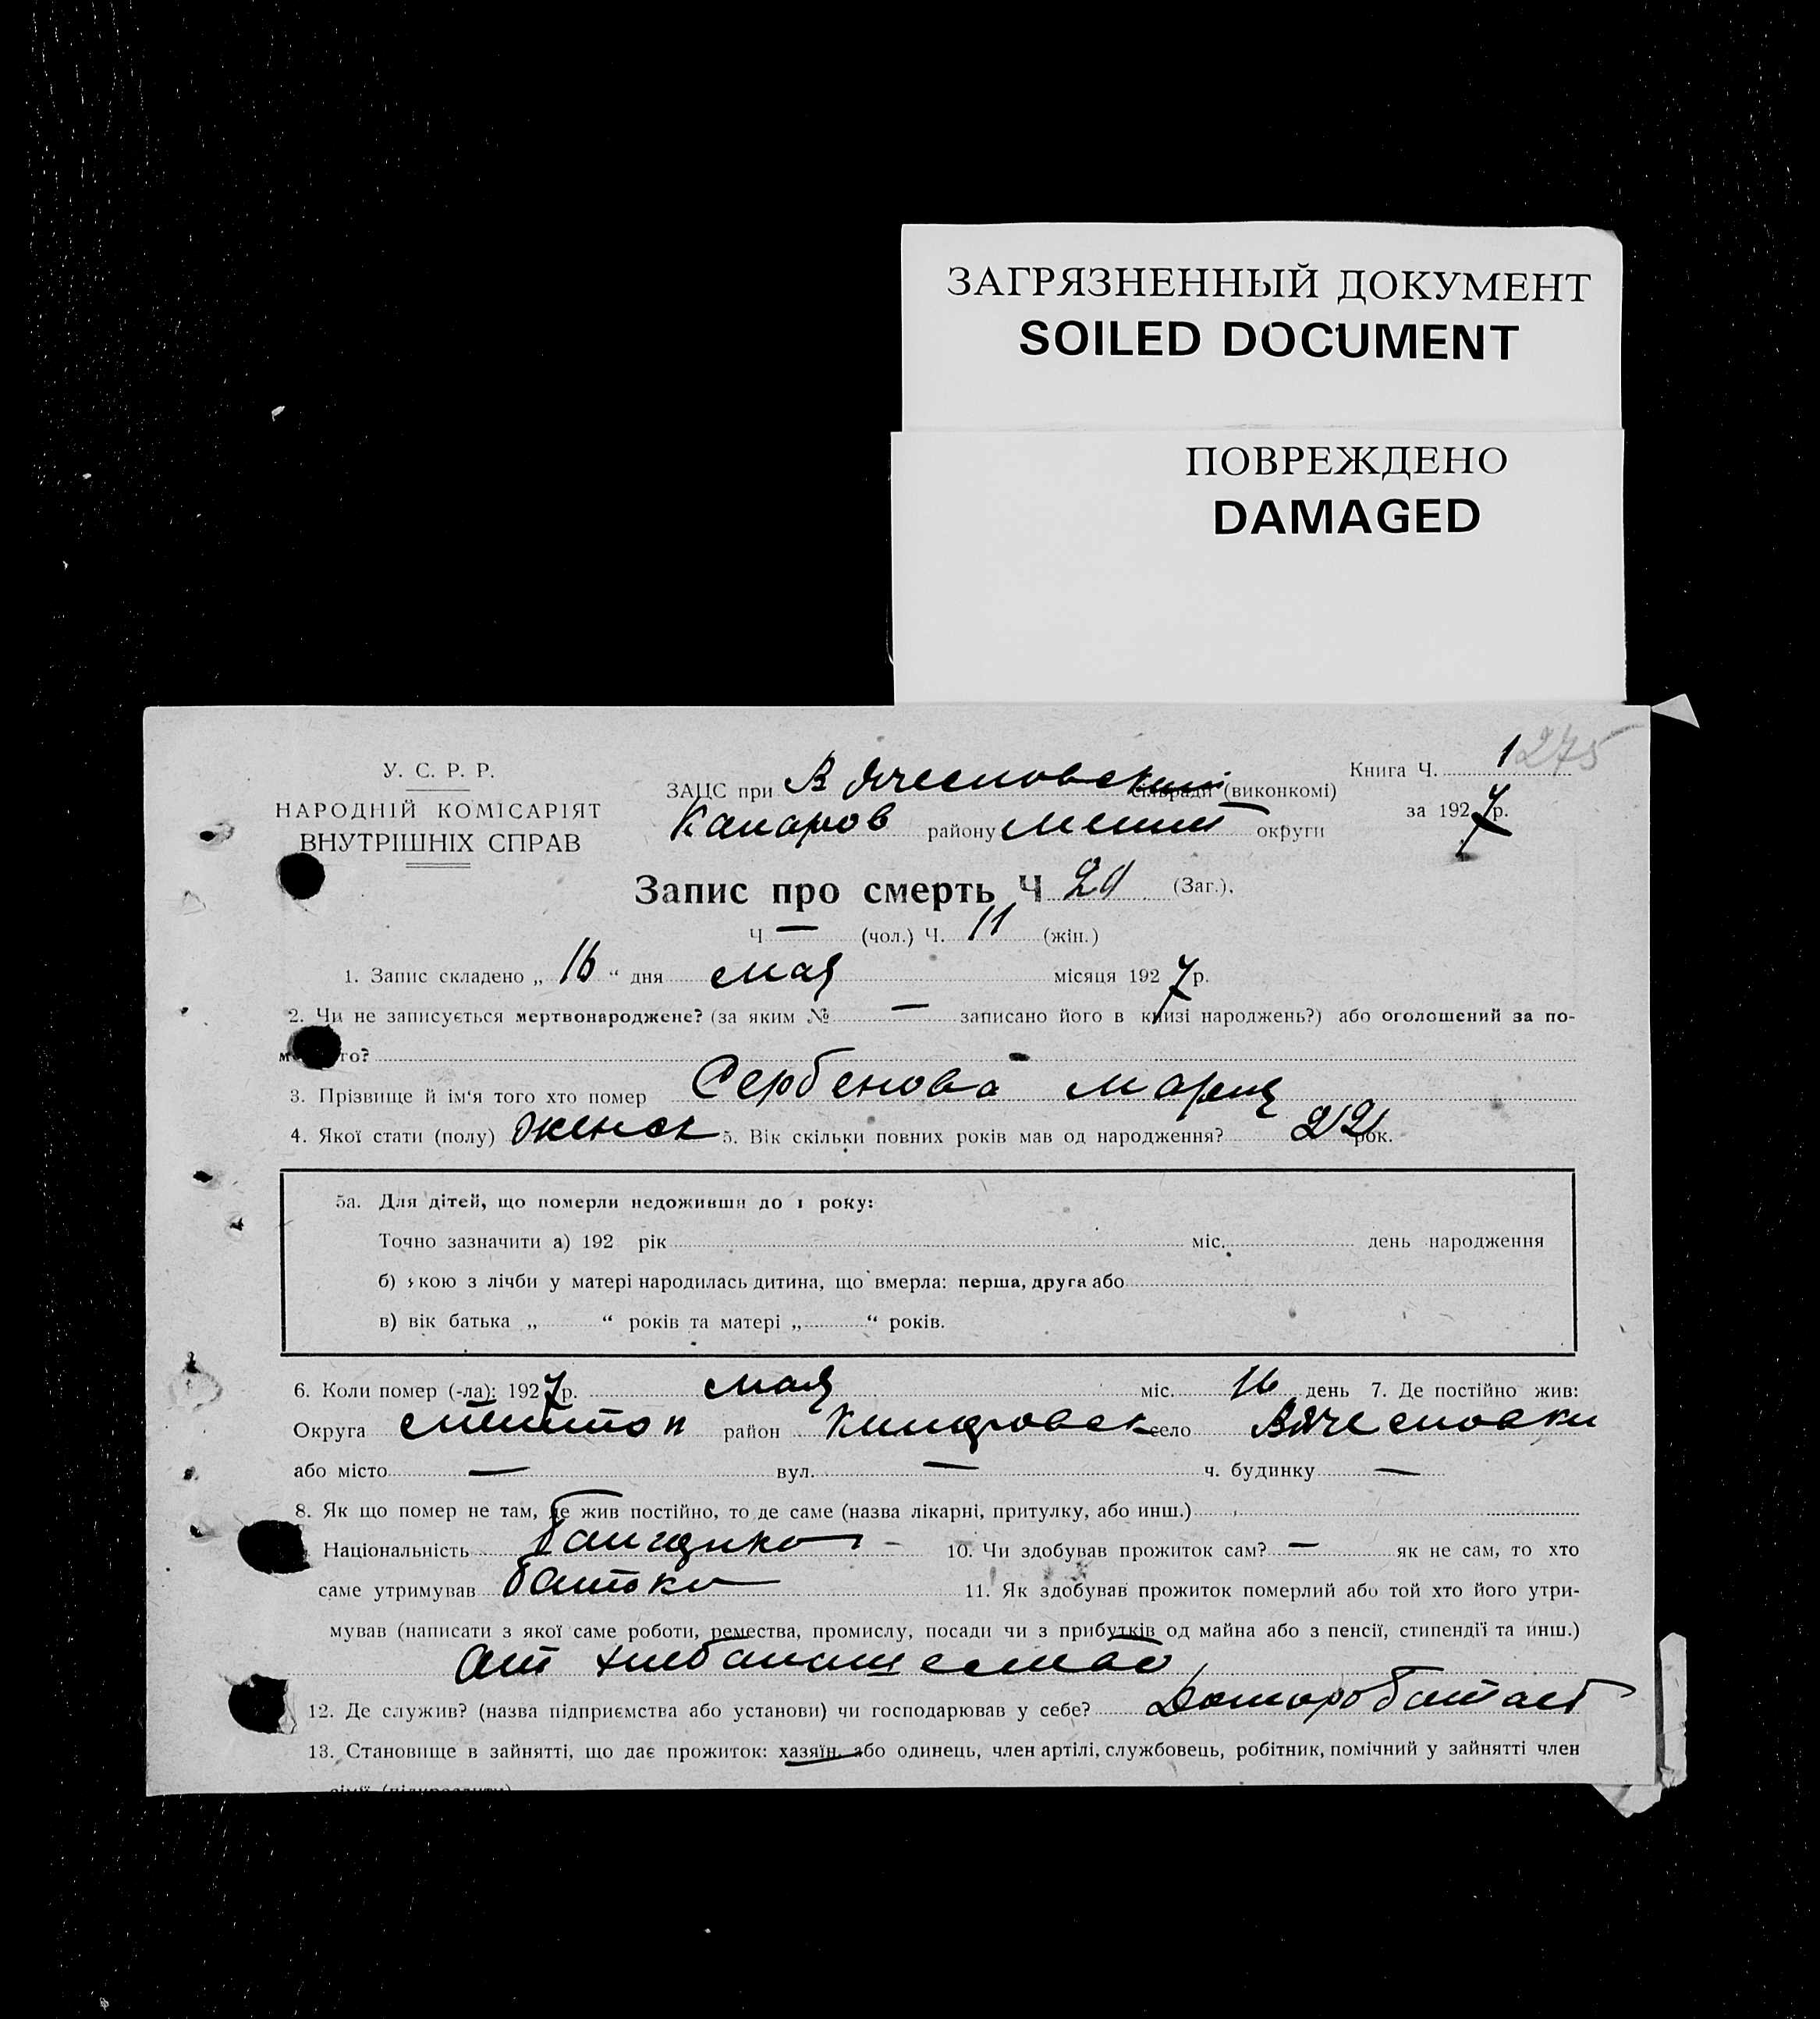 ЗАГРЯЗНЕННЫЙ ДОКУМЕНТ
SOILED DOCUMENT
ПОВРЕЖДЕНО
DAMAGED
275
У. С. Р. Р.
НАРОДНІЙ КОМІСАРІЯТ
ВНУТРІШНІХ СПРАВ
Книга Ч. 1
за 1927р.
ЗАЦС при (виконкомі)
району округи
Запис про смерть Ч 20 (Заг.).
Ч — (чол.) Ч. 11 (жін.)
1. Запис складено „ 16 “ дня мая місяця 1927р.
2. Чи не записується мертвонароджене? (за яким № — записано його в книзі народжень?) або оголошений за по-
го?
3. Прізвище й ім‘я того хто помер Сербенова Мария
4. Якої стати (полу) женск 5. Вік скільки повних років мав од народження? 22 рок.
5а. Для дітей, що померли недоживши до 1 року:
Точно зазначити а) 192 рік міс. день народження
б) якою з лічби у матері народилась дитина, що вмерла: перша, друга або
в) вік батька „ “ років та матері „ “ років.
6. Коли помер (-ла): 1927р. мая міс. 16 день 7. Де постійно жив:
Округа район село
або місто — вул. — ч. будинку —
8. Як що помер не там, де жив постійно, то де саме (назва лікарні, притулку, або инш.)
Національність 10. Чи здобував прожиток сам? — як не сам, то хто
саме утримував батько 11. Як здобував прожиток померлий або той хто його утри-
мував (написати з якої саме роботи, ремества, промислу, посади чи з прибутків од майна або з пенсії, стипендії та инш.)
от хлебопашества
12. Де служив? (назва підприємства або установи) чи господарював у себе?
13. Становище в зайнятті, що дає прожиток: хазяїн, або одинець, член артілі, службовець, робітник, помічний у зайнятті член